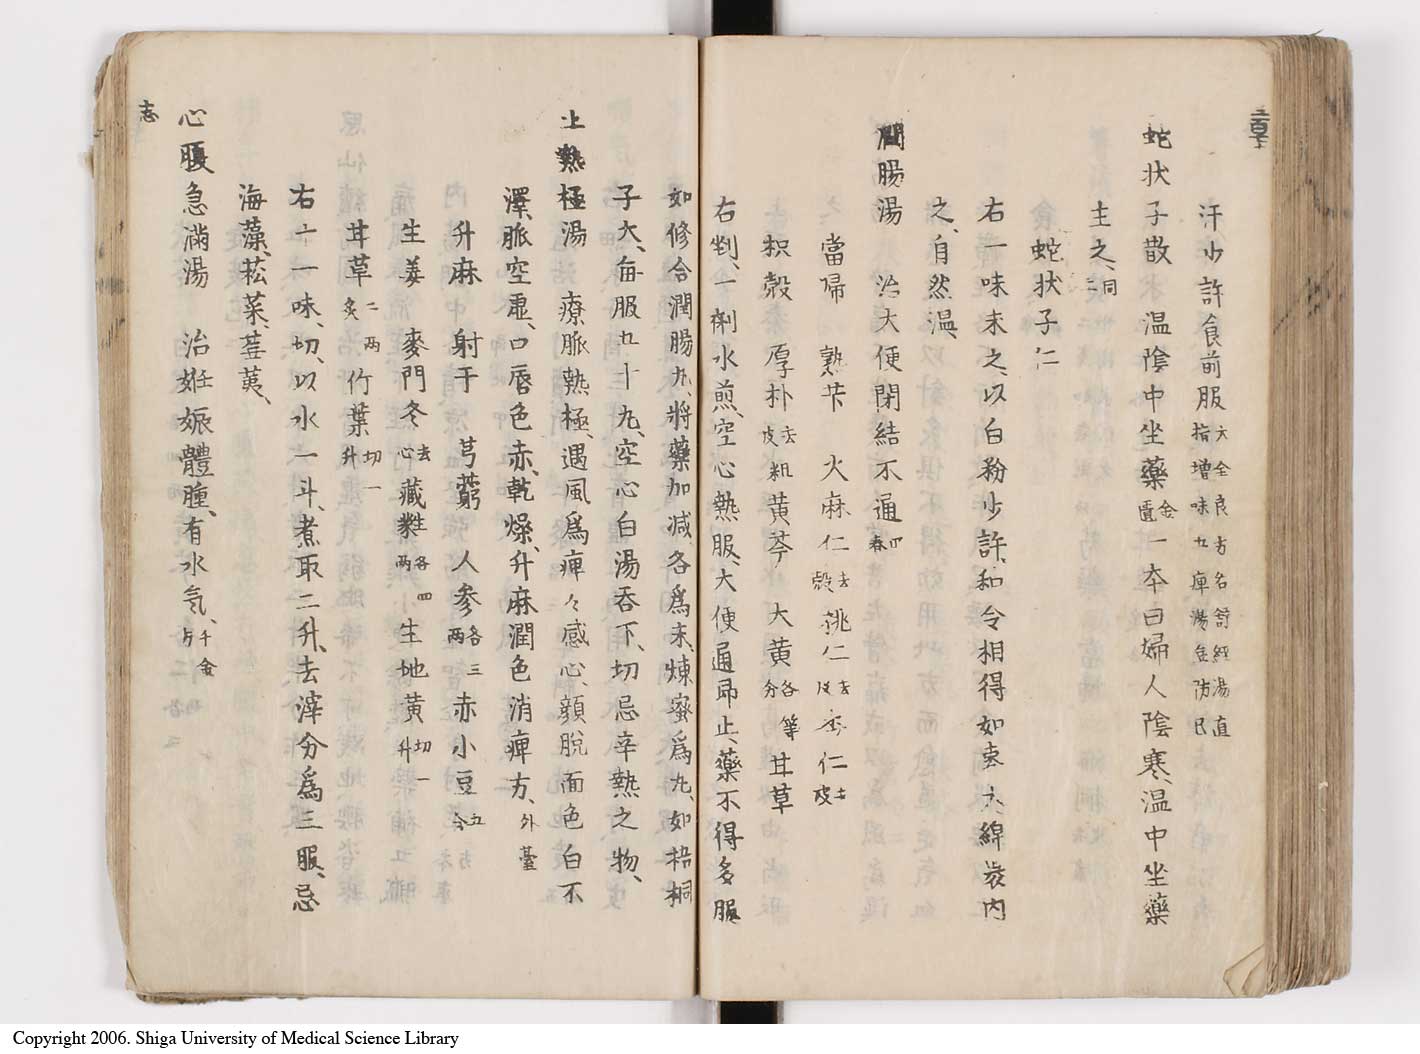 汗少許食前服大全良方名舒経湯直指増味五痺湯無防已
蛇状子散 温陰中坐藥金匱一本曰婦人陰寒、温中坐藥
主之、同
蛇状子仁
右一味末之、以白粉少許、和令相得如棗大綿裹内
之、自然温、
潤腸湯 治大便閉結不通
當帰 熟芐 火麻仁去殻 桃仁去皮 杏仁去皮
枳殻 厚朴去粗皮 黄芩 大黄各等分 甘草
右剉、一剤水煎、空心熱服、大便通即止、藥不得多服
如修合潤腸丸、将藥加减、各為末、煉蜜為丸、如梧桐
子大、毎服五十丸、空心白湯吞下、切忌辛熱之物、
上熱極湯 療脈熱極、遇風為痺々感心、顔脫面色白不
澤、脈空虚、口唇色赤、乾燥、升麻潤色消痺方、外臺
升麻 射干 芎藭 人参各三両 赤小豆五合
生姜 麥門冬去心 葳蕤各四両 生地黄切一升
甘草二両炙 竹葉切一升
右十一味、切、以水一斗、煮取二升、去滓分為三服、忌
海藻、菘菜、蕪荑、
志
心腹急滿湯 治妊娠體腫、有水気、千金方
Copyright 2006. Shiga University of Medical Science Library